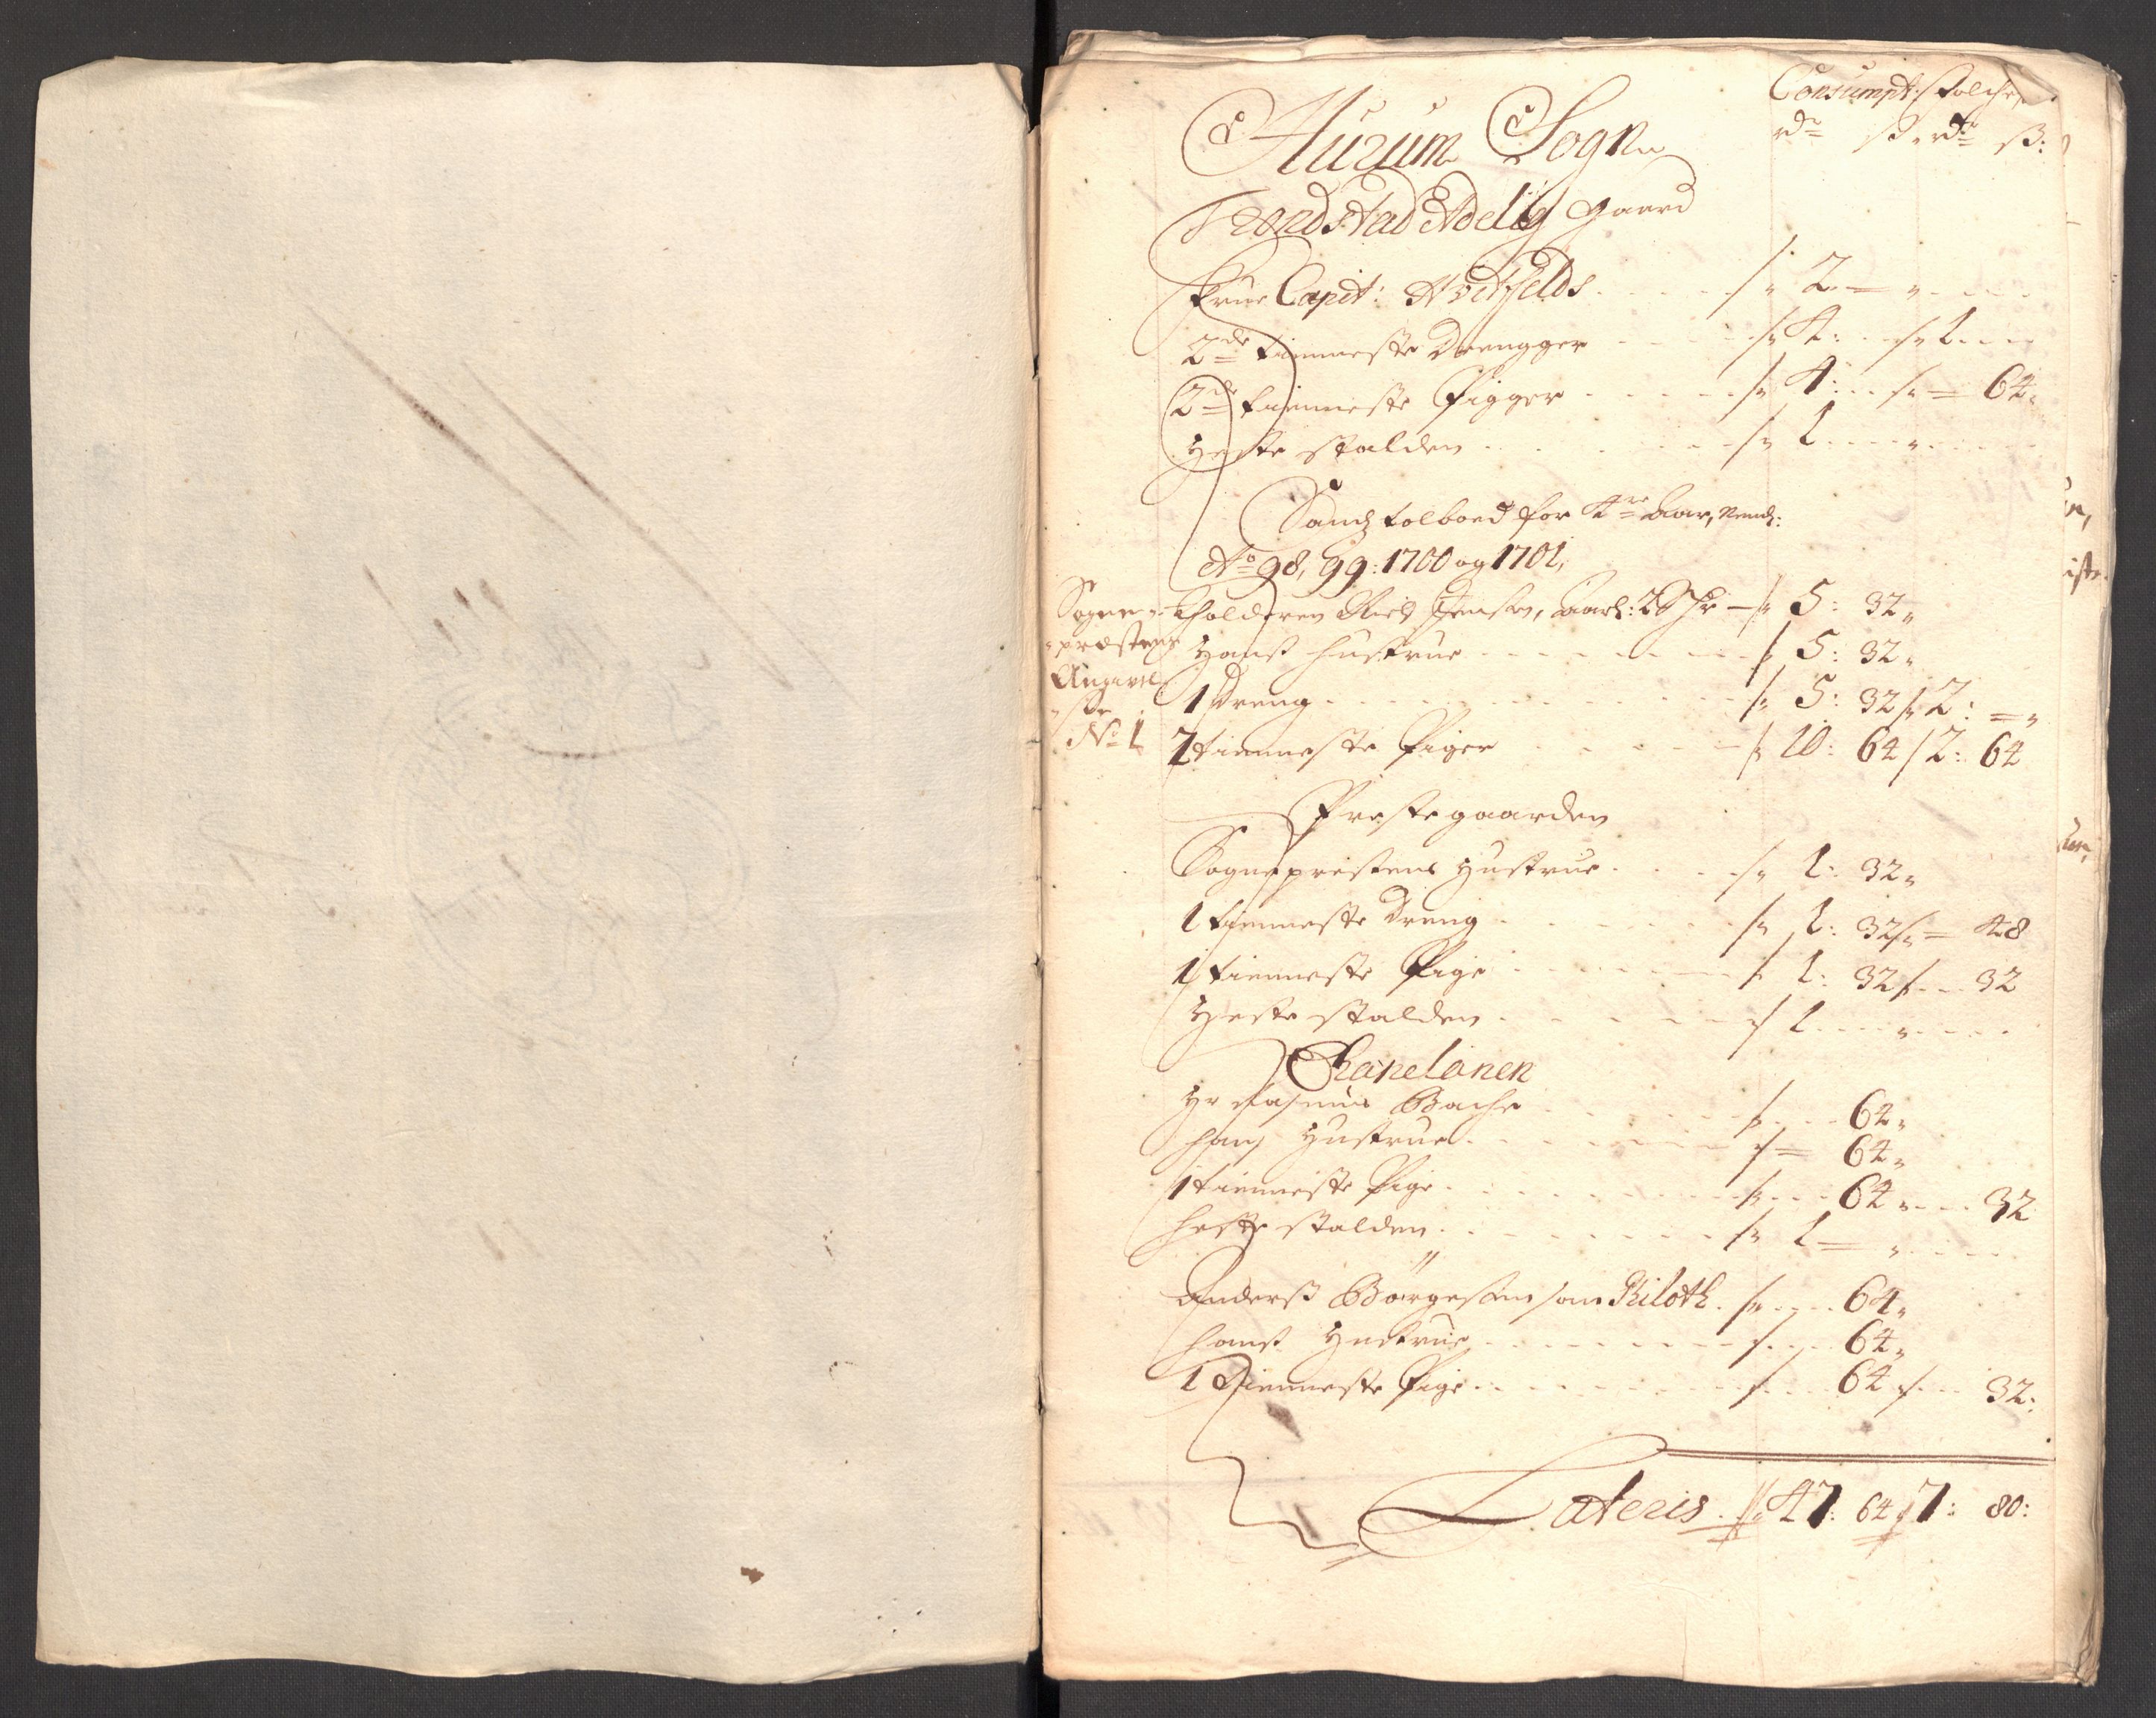 Consumpt: folche
rdr ß rdr ß:
Hurum Sogn
Trondstad Adelig gaard
Frue Capit: Hvitfelds 2
2de tienneste Drengger 4: 1
2de tienneste Pigger 4: 64
Heste stalden 1
Sand tolboed for 4re Aar, Nembl:
Ao 98, 99: 1700 og 1701,
Sogne-
præstens
Angivel
se
No 1
holderen Niels Jensen, aarl: 5: 32
Hanß hustrue 5: 32
1 Dreng 5: 32 2:
2 tienneste Piger 10: 64 2: 64
Prestegaarden
Sogneprestens Hustrue 1: 32
1 tienneste Dreng 1: 32 48
1 tienneste Pige 1: 32 32
Heste stalden 1
Capelanen
Hr Rasmus Bache 64
hans Hustrue 64
1 tienneste Pige 64 32
heste stalden 1
Anderß Børgesen 64
hanß Hustrue 64
1 Tienneste Pige 64 32:
Lateris 47: 64 7: 80: